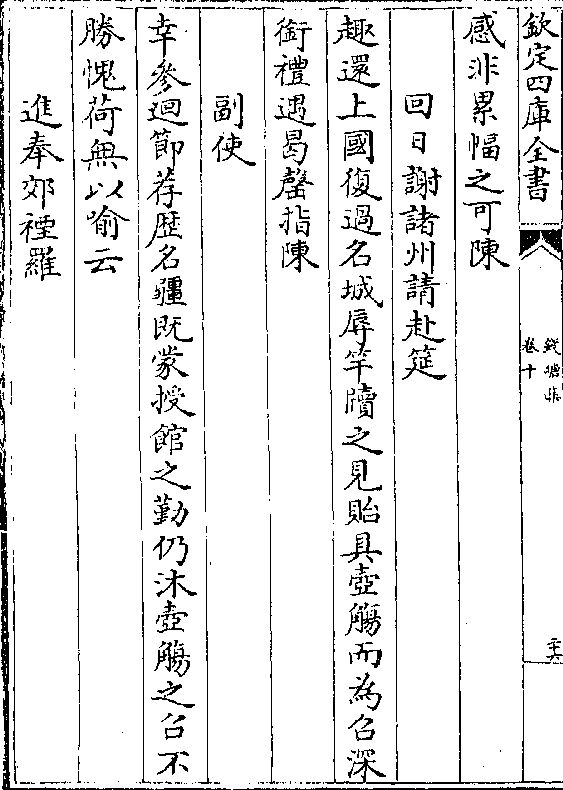 欽定四庫全書
錢塘集
卷十
二十六
感非累幅之可陳
回日謝諸州請赴筵
趣還上國復過名城辱竿牘之見貽具壺觴而為召深
銜禮遇曷罄指陳
副使
幸參迴節荐歴名疆既蒙授館之勤仍沐壺觴之召不
勝愧荷無以喻云
進奉郊禋羅